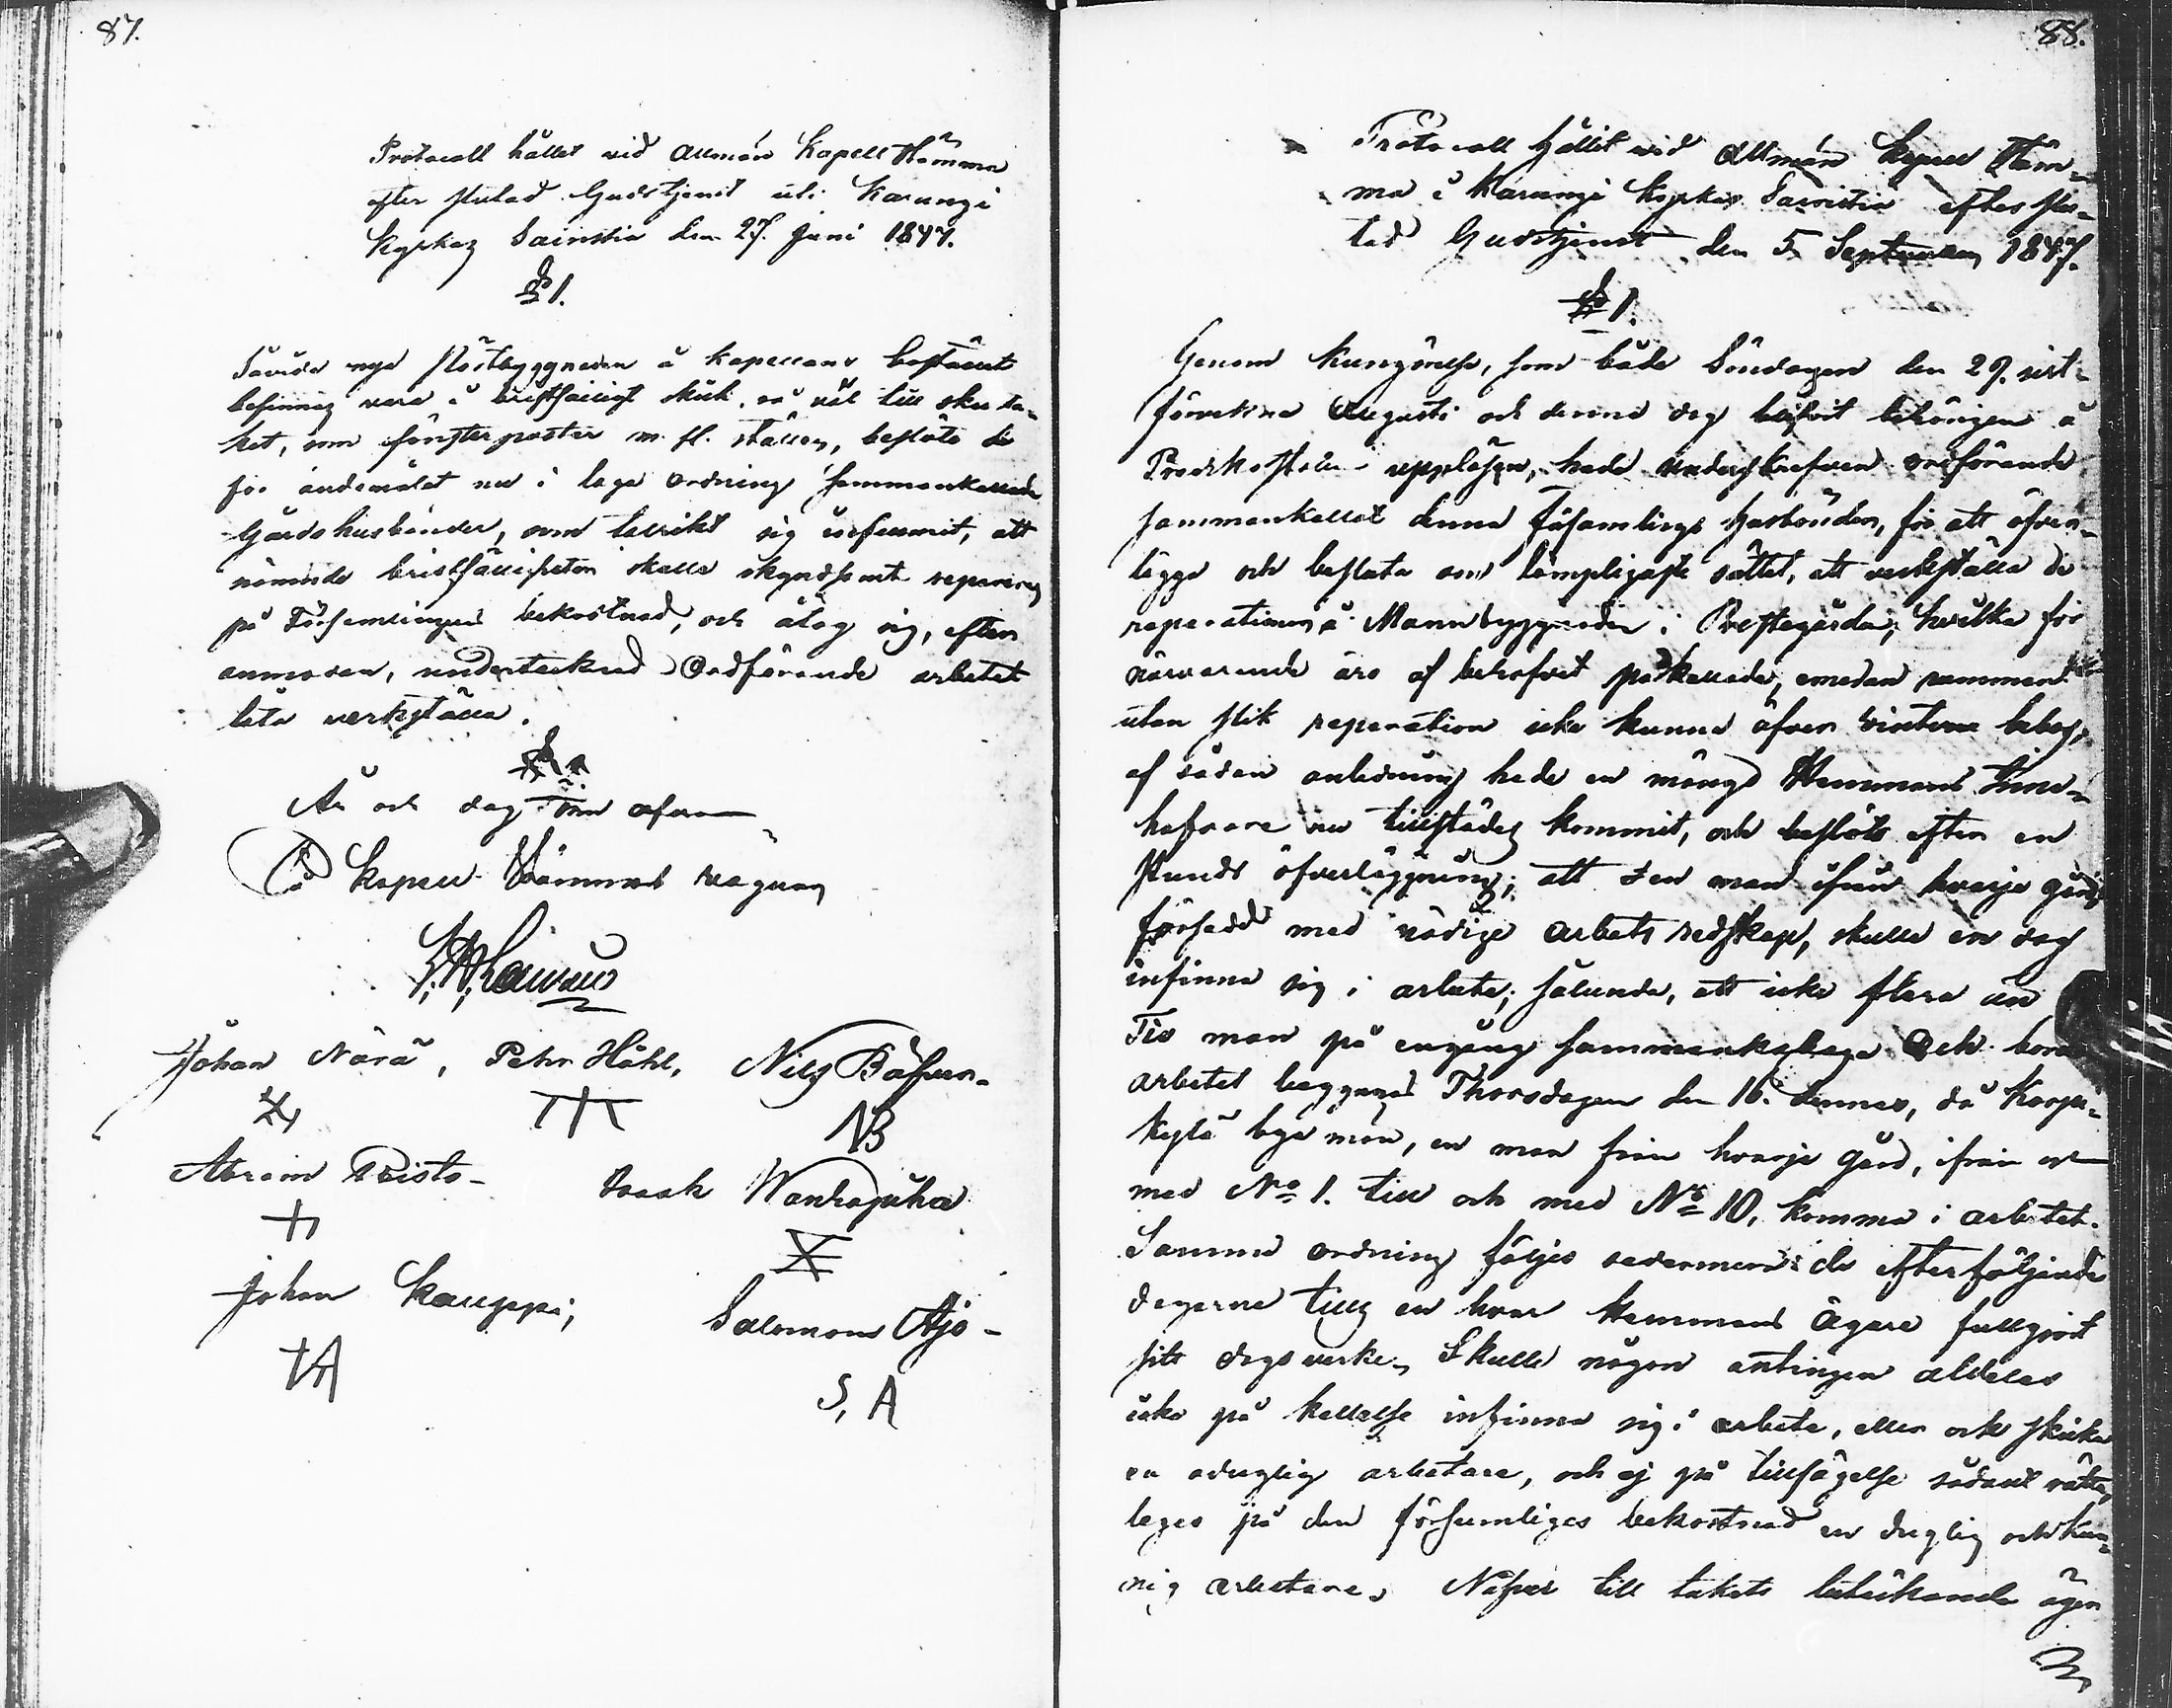 87.
Protocoll hållet vid Allmän Kapell Stämma
efter slutad Gudstjenst uti Karungi
Kyrkas Sacristia den 27. Juni 1847.
§ 1.
Såvida nya Röstbyggnaden å Kapellans bostället
befinnes vara i bristfälligt skick, så väl till sku ta-
ket, som fönsterposter m. fl. ställen, beslöto de
för ändamålet nu i laga ordning sammankallade
Gårdshusbönder, som talrikt sig infunnit, att
nämnde bristfälligheter skulle skyndsamt repareras
på Församlingens bekostnad, och åtog sig, efter
anmodan, undertecknad Ordförande arbetet
låta verkställa.
År och dag som ofvan
På Kapell Stämmans vägnar
Johan Närä, Petr Höhl, Nils Bäfver-
NB
Abram Risto- Isaak Wanhapiha
Johan Kauppi, Salomon Ajo-
S, A
88.
Protocoll hållit vid Allmän Kapell Stäm-
ma i Karungi Kyrkas Sacristia efter slu-
tad Gudstjenst den 5 September 1847.
§ 1.
Genom kungörelse, som både Söndagen den 29. sist-
förvekna Augusti och denna dag blifvit behörigen å
Predikostolen uppläsen, hade underskrefven ordförande
sammankallat denna Församlings husbönder, för att öfver-
lägga och besluta om lämpligaste sättet, att verkställa de
reparationer å Mannbyggnaden i Prestegården, hvilka för
närvarande äro af behofvet påkallade, emedan rummen
utan slik reparation icke kunna öfver vintern bebos,
af sådan anledning hade en mängd Hemmans Inne-
hafvare nu tillstädes kommit, och beslöts efter en
stunds öfverläggning; att en man ifrån hvarje gård,
försedd med nödige arbets redskap, skulle en dag
infinna sig i arbete; sålunda, att icke flera än
Tio man på engång sammankallas. Och bör
arbetet begynna Thorsdagen den 16. dennes, då Korpi-
kylä bya män, en man från hvarje gård, ifrån och
med No 1. till och med No 10, komma i arbetet.
Samma ordning följes sedermera de efterföljande
dagarne tills en hvar Hemmans Ägare fullgjort
sitt dagsverke. Skulle någon antingen aldeles
icke på kallelse infinna sig i arbete, eller ock skicka
en oduglig arbetare, och ej på tillsägelse sådant rätta,
leges på den försumliges bekostnad en duglig och kun-
nig arbetare. Näfver till takets betäckande ägen